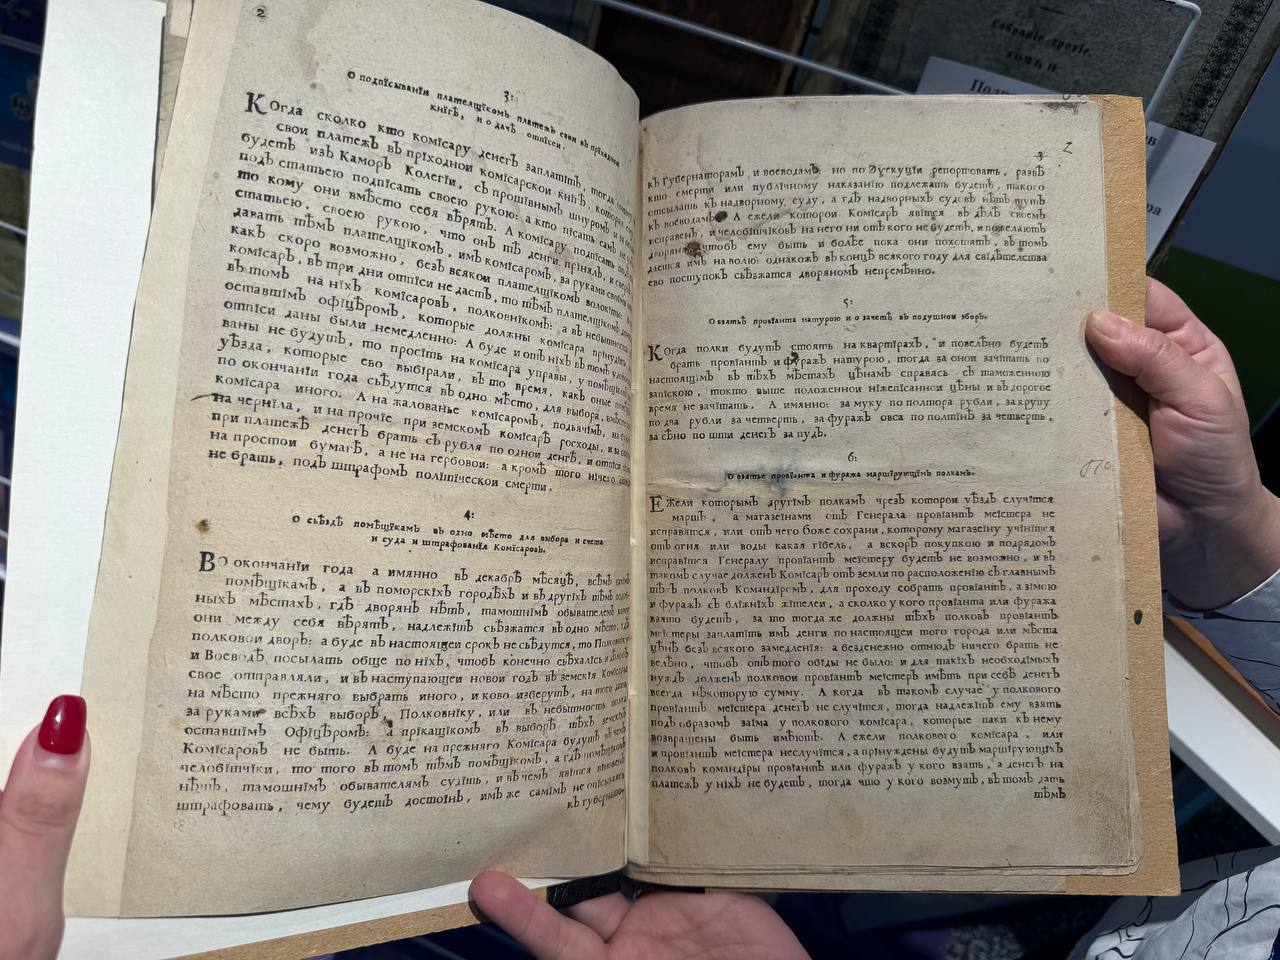 2
3:
О подпїсыванїи плателщїкомъ платежъ свои въ прїходнои
кнїгѣ, и о дачѣ отпїсеи.
Когда сколко кто комїсару денегъ заплатїтъ, тогда
свои платежъ въ прїходнои комїсарскои кнїгѣ, которая
будетъ изъ Каморъ Колегїи, съ прошївнымъ шнуромъ и
подъ статьею подпїсать своею рукою: а кто пїсать самъ не
то кому они вмѣсто себя вѣрятъ. А комїсару подпїсать подъ
статьею, своею рукою, что онъ тѣ денги прїнялъ, и сверхъ
давать тѣмъ плателщїкомъ, имъ комїсаромъ, за руками своїми
какъ скоро возможно, безъ всякои плателщїкомъ волокїты:
комїсаръ, въ три дни отпїси не дастъ, то тѣмъ плателщїкомъ
въ томъ на нїхъ комїсаровъ, полковнїкомъ: а въ небытность
оставшїмъ офїцѣромъ, которые должны комїсара прїнудїть
отпїси даны были немедленно: А буде и отъ нїхъ въ томъ
ваны не будутъ, то просїть на комїсара управы, у помѣщїковъ
уѣзда, которые ево выбїрали, въ то время, какъ оные
по окончанїи года съѣдутся въ одно мѣсто, для выбора, вмѣсто
комїсара иного. А на жалованье комїсаромъ, подьячїмъ, на
на чернїла, и на прочїе при земскомъ комїсарѣ росходы, и на
при платежѣ денегъ брать съ рубля по однои денгѣ, и отпїси
на простои бумагѣ, а не на гербовои: а кромѣ того нїчего
не брать, подъ штрафомъ полїтїческои смерти.
4:
О съѣздѣ помѣщїкамъ въ одно мѣсто для выбора и счета
и суда и штрафованїя Комїсаровъ.
Во окончанїи года а имянно въ декабрѣ мѣсяцѣ, всѣмъ
помѣщїкамъ, а въ поморскїхъ городѣхъ и въ другїхъ тѣмъ
ныхъ мѣстахъ, гдѣ дворянъ нѣтъ, тамошнїмъ обывателемъ кому
они между себя вѣрятъ, надлежїтъ съѣзжатся въ одно мѣсто, гдѣ
полковои дворъ: а буде въ настоящеи срокъ не съѣдутся, то Полковнїку
и Воеводѣ посылать обще по нїхъ, чтобъ конечно съѣхалїсь и
свое отправляли, и въ наступающеи новои годъ въ земскїя Комїсары
на мѣсто прежняго выбрать иного, и ково изберутъ, на того дать
за руками всѣхъ выборъ, Полковнїку, или въ небытность полка
оставшїмъ Офїцѣромъ: а прїкащїкомъ въ выборѣ тѣхъ земскїхъ
Комїсаровъ не быть. А буде на прежняго Комїсара будутъ въ чемъ
челобїтчїки, то того въ томъ тѣмъ помѣщїкомъ, а гдѣ помѣщїковъ
нѣтъ, тамошнїмъ обывателямъ судїть, и въ чемъ явїтся вїновенъ
штрафовать, чему будетъ достоїнъ, имъ же самїмъ не опїсываясь
къ губернаторамъ
3
2
къ Губернаторамъ, и воеводамъ: но по Эѯекуцїи репортовать, развѣ
кто смерти или публїчному наказанїю подлежать будетъ, такого
отсылать къ надворному суду, а гдѣ надворныхъ судовъ нѣтъ, тутъ
къ воеводамъ. А ежели которои Комїсаръ явїтся въ дѣлѣ своемъ
исправенъ, и челобїтчїковъ на него ни отъ кого не будетъ, и пожелаютъ
дворяня, чтобъ ему быть и болѣе пока они похотятъ, въ томъ
дается имъ на волю: однакожъ въ концѣ всякого году для свїдѣтелства
ево поступокъ съѣзжатся дворяномъ непремѣнно.
5:
О взятьѣ провїанта натурою и о зачетѣ въ подушнои зборъ.
Когда полки будутъ стоять на квартїрахъ, и повелѣно будетъ
брать провїантъ и фуражъ натурою, тогда за онои зачїтать по
настоящїмъ въ тѣхъ мѣстахъ цѣнамъ справясь съ таможенною
запїскою, токмо выше положеннои нїжепїсаннои цѣны и въ дорогое
время не зачїтать. А имянно: за муку по полтора рубли, за крупу
по два рубли за четверть, за фуражъ овса по полтїнѣ за четверть,
за сѣно по шти денегъ за пудъ.
6:
О взятье провїанта и фуража маршїрующїмъ полкамъ.
Ежели которымъ другїмъ полкамъ чрезъ которои уѣздъ случїтся
маршъ, а магазеїнами отъ Генерала провїантъ меїстера не
исправятся, или отъ чего боже сохрани, которому магазеїну учїнїтся
отъ огня или воды какая гїбель, а вскорѣ покупкою и подрядомъ
исправїтся Генералу провїантъ меїстеру будетъ не возможно, и въ
такомъ случае долженъ Комїсаръ отъ земли по расположенїю съ главнымъ
тѣхъ полковъ Командїромъ, для проходу собрать провїантъ, а зїмою
и фуражъ съ ближнїхъ жїтелеи, а сколько у кого провїанта или фуража
взято будетъ, за то тогда же должны тѣхъ полковъ провїантъ
меїстеры заплатїть имъ денги по настоящеи того города или мѣста
цѣнѣ безъ всякого замедленїя: а безденежно отнюдь ничего брать не
велѣно, чтобъ отъ того обїды не было: и для такїхъ необходїмыхъ
нуждъ долженъ полковои провїантъ меїстеръ имѣть при себѣ денегъ
всегда нѣкоторую сумму. А когда въ такомъ случае у полкового
провїантъ меїстера денегъ не случїтся, тогда надлежїтъ ему взять
подъ образомъ заїма у полкового комїсара, которые паки къ нему
возвращены быть имѣютъ. А ежели полкового комїсара, или
и провїантъ меїстера неслучїтся, а прїнуждены будутъ маршїрующїхъ
полковъ командїры провїантъ или фуражъ у кого взять, а денегъ на
платежъ у нїхъ не будетъ, тогда что у кого возмутъ, въ томъ дать
тѣмъ
Собранїе третїе.